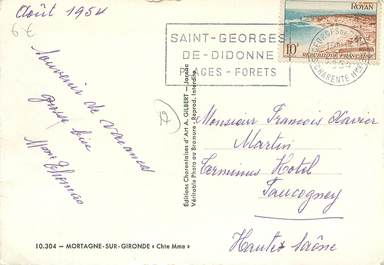 Août 1954
6 €
ROYAN
10F
SAINT-GEORGES
DE-DIDONNE
PLAGES - FORETS
CHARENTE
Souvenir de Vacances
Mme Thomas
Editions Charentaises d'Art A. GILBERT -
Véritable Photo au Bromure - Reprod. Interdite
Monsieur François Xavier
Martin
Terminus Hotel
Faucogney
Haute Saône
10.304 - MORTAGNE-SUR-GIRONDE « Chte Mme »